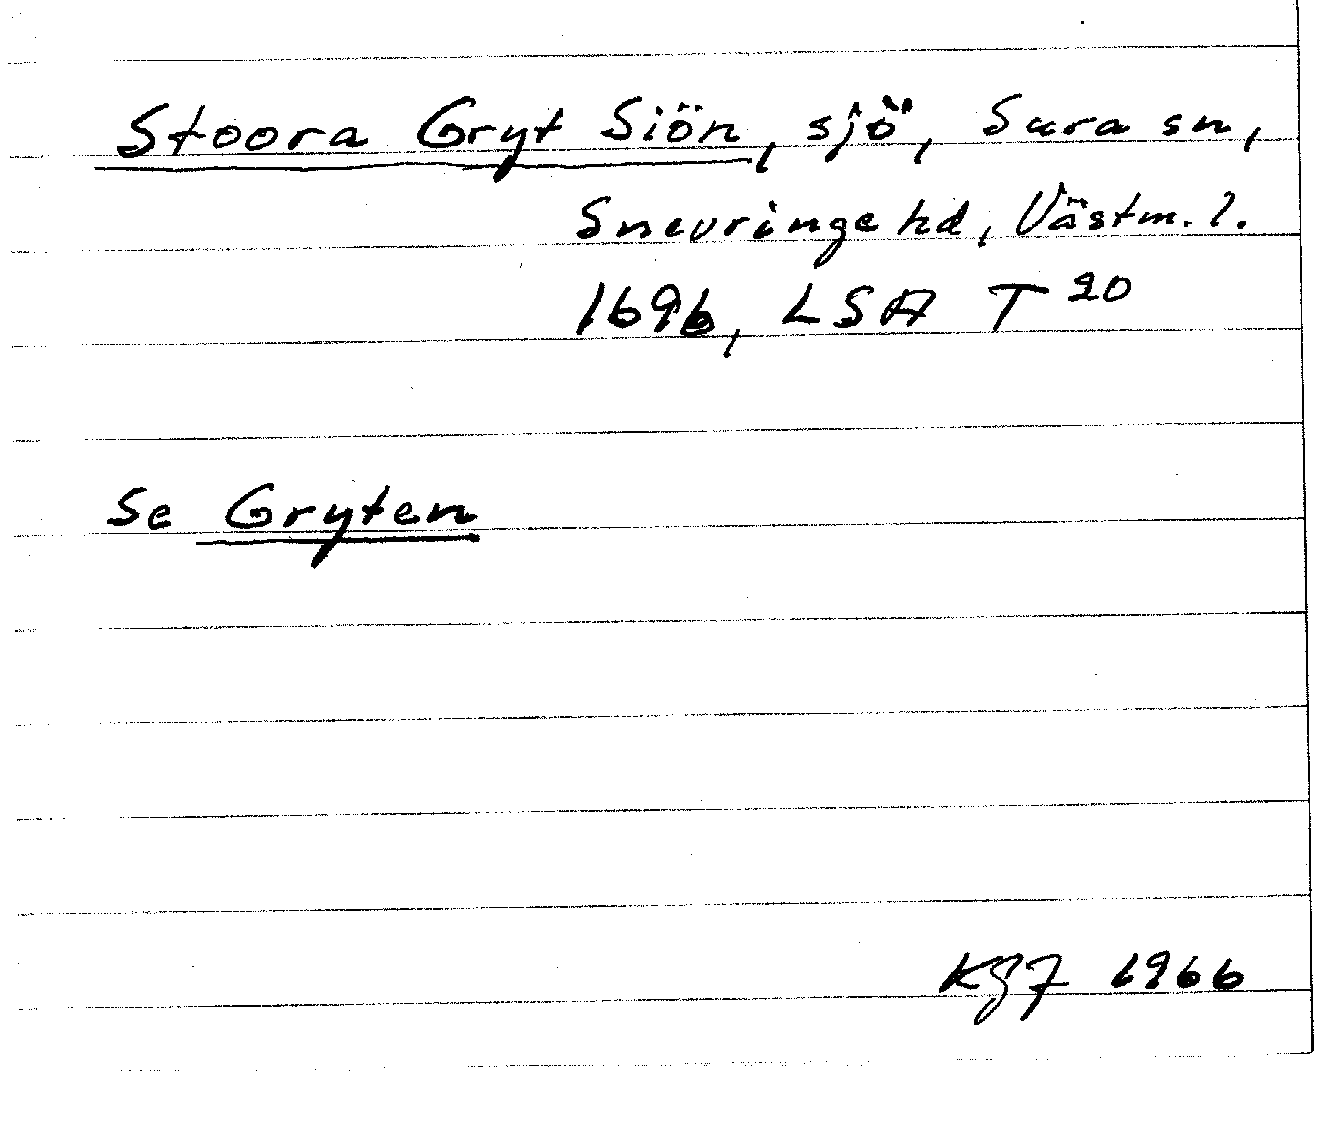 Stoora Gryt Siön, sjö, Sura sn,
Snevringe hd, Västm. l.
1696, LSA T 20
Se Gryten
KGF 1966